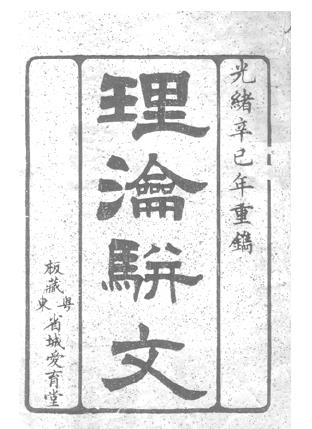 光緒辛巳年重鐫
理瀹駢文
板藏粵東省城愛育堂